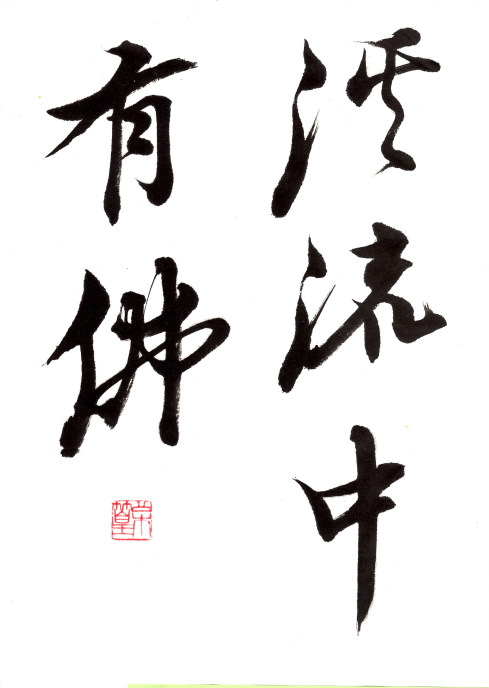 流中
有佛